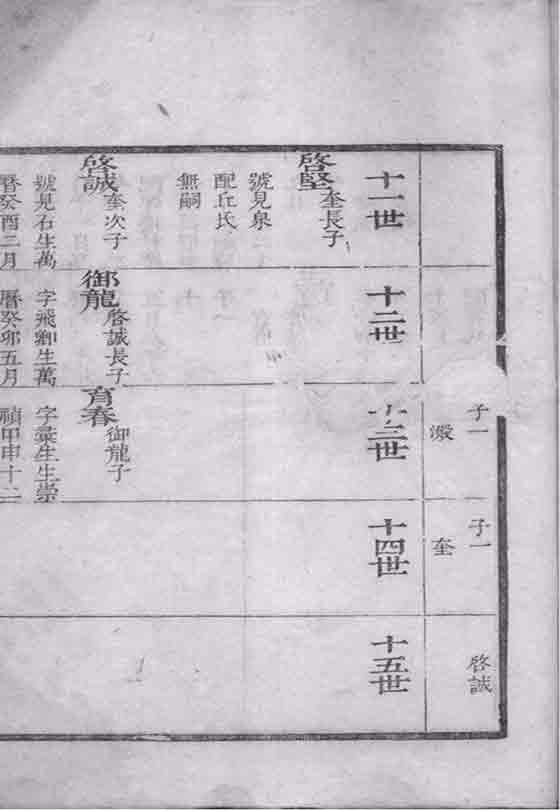 子一
澂
子一
奎
啓誠
十一世
十二世
十三世
十四世
十五世
啓堅 奎長子
號見泉
配丘氏
無嗣
啓誠 奎次子
號見石生萬
曆癸酉二月
御龍 啓誠長子
字飛卿生萬
曆癸卯五月
育春 御龍子
字彙生生崇
禎甲申十二